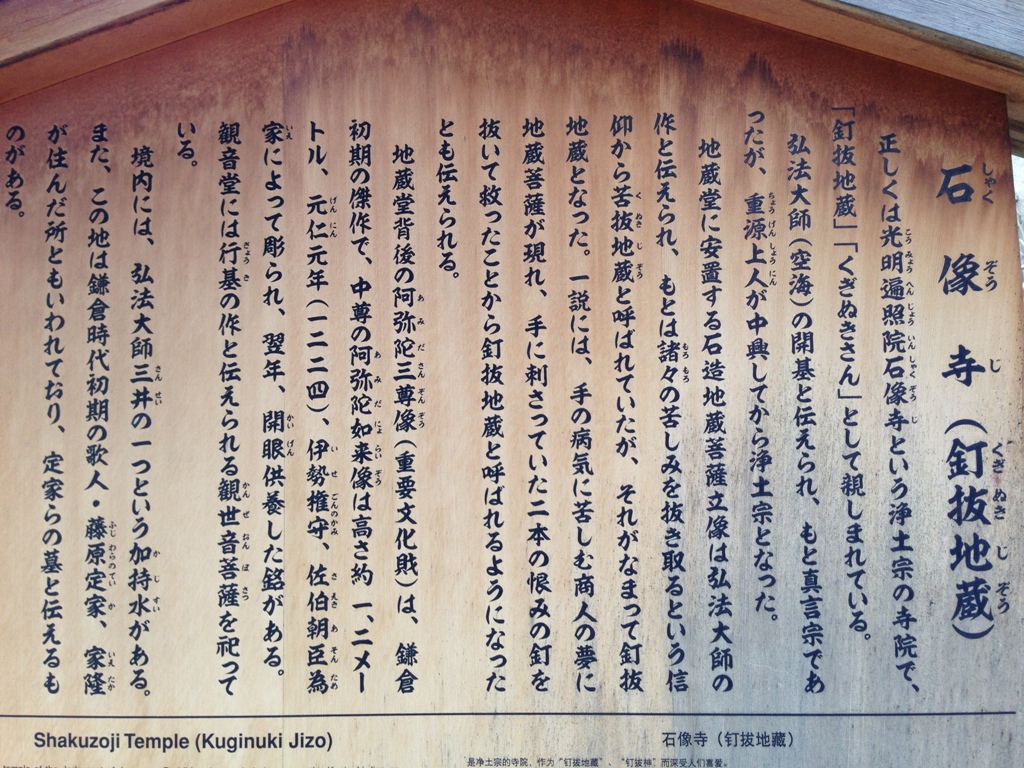 石像寺（釘抜地蔵）
正しくは光明遍照院石像寺という浄土宗の寺院で、
「釘抜地蔵」「くぎぬきさん」として親しまれている。
弘法大師（空海）の開基と伝えられ、もと真言宗であ
ったが、重源上人が中興してから浄土宗となった。
地蔵堂に安置する石造地蔵菩薩立像は弘法大師の
作と伝えられ、もとは諸々の苦しみを抜き取るという信
仰から苦抜地蔵と呼ばれていたが、それがなまって釘抜
地蔵となった。一説には、手の病気に苦しむ商人の夢に
地蔵菩薩が現れ、手に刺さっていた二本の恨みの釘を
抜いて救ったことから釘抜地蔵と呼ばれるようになった
とも伝えられる。
地蔵堂背後の阿弥陀三尊像（重要文化財）は、鎌倉
初期の傑作で、中尊の阿弥陀如来像は高さ約一、二メー
トル、元仁元年（一二二四）、伊勢権守、佐伯朝臣為
家によって彫られ、翌年、開眼供養した銘がある。
観音堂には行基の作と伝えられる観世音菩薩を祀って
いる。
境内には、弘法大師三井の一つという加持水がある。
また、この地は鎌倉時代初期の歌人・藤原定家、家隆
が住んだ所ともいわれており、定家らの墓と伝えるも
のがある。
Shakuzoji Temple (Kuginuki Jizo)
石像寺（钉拔地藏）
是净土宗的寺院，作为“钉拔地藏”、“钉拔神”而深受人们喜爱。